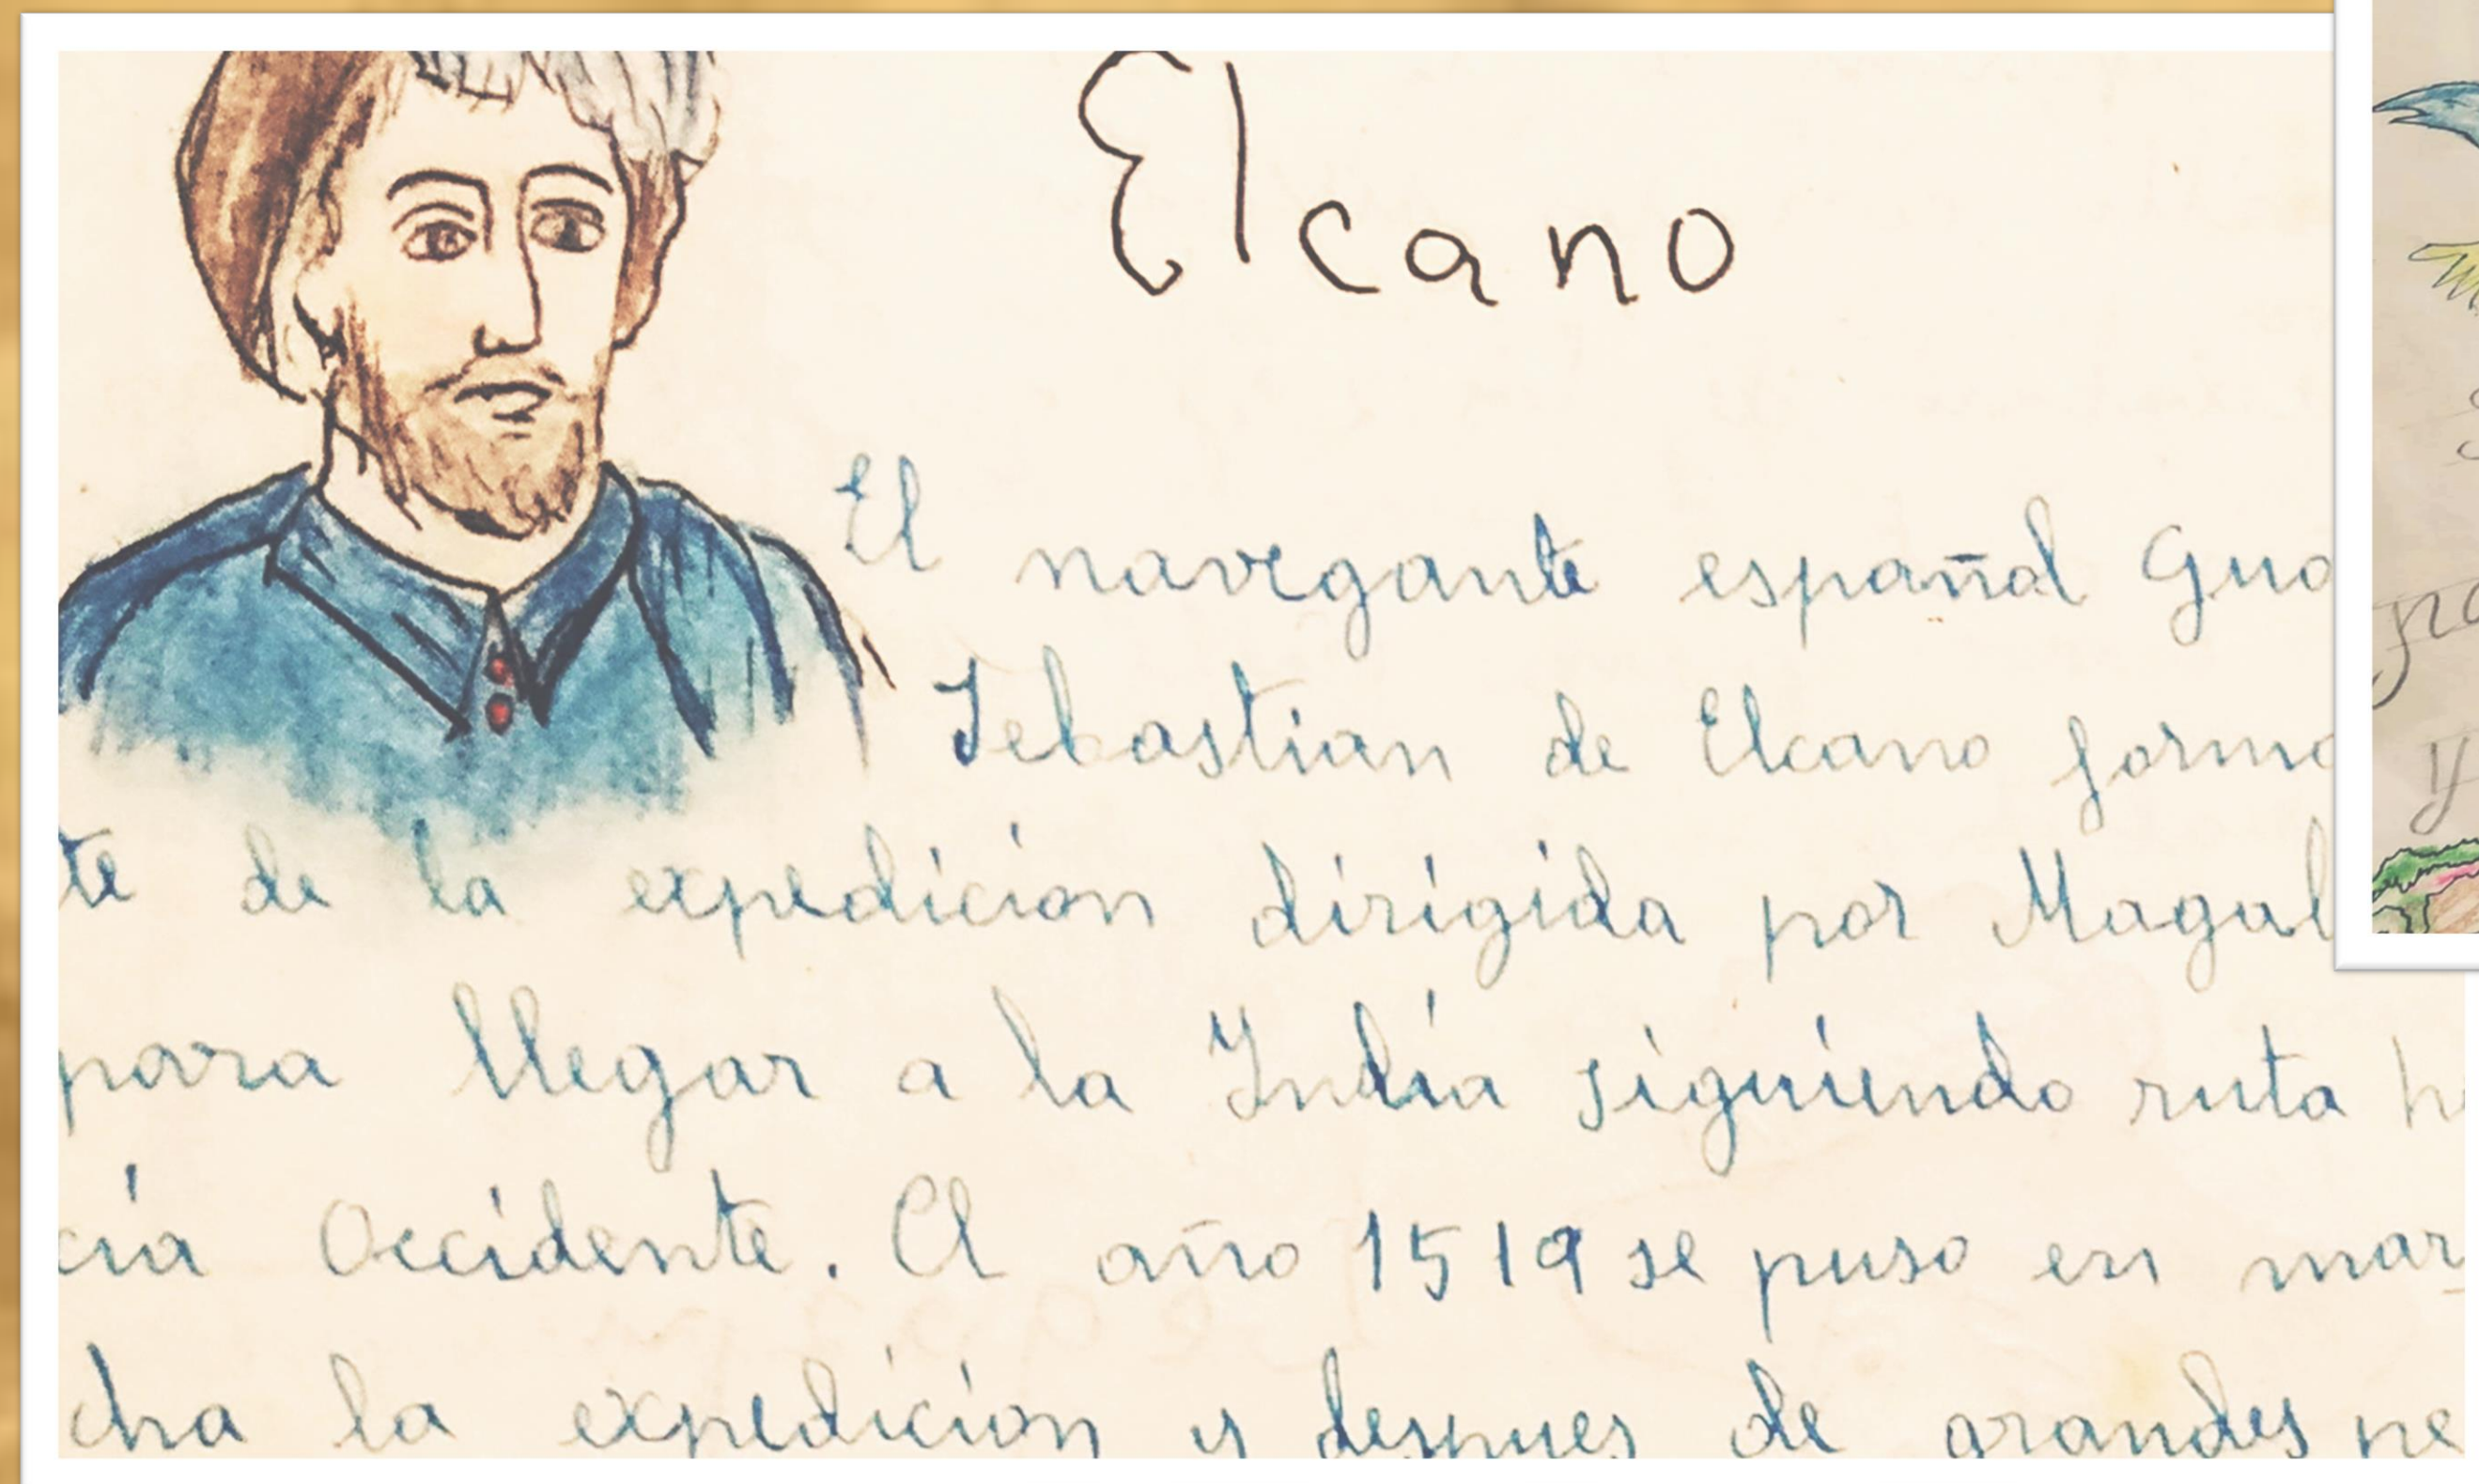 Elcano
El navegante español Gua
Sebastian de Elcano forma
te de la expedicion dirigida por Magal
para llegar a la India siguiendo ruta ha
cia Occidente. El año 1519 se puso en mar_
cha la expedicion y despues de grandes pe
y